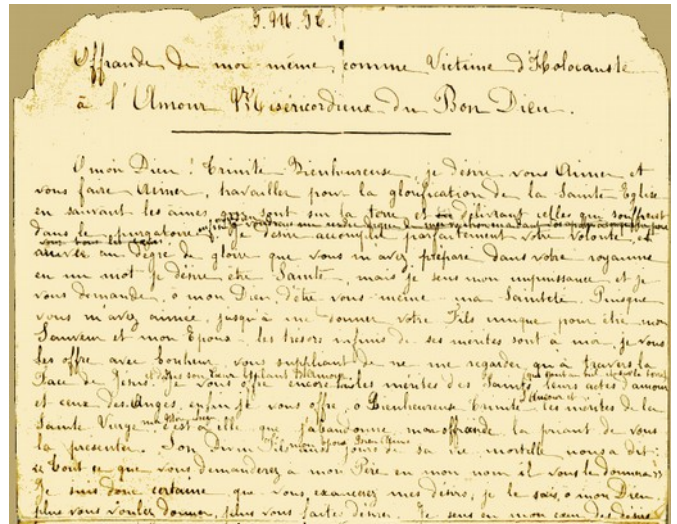 J. M. J. T.
Offrande de moi-même, comme Victime d'Holocauste
à l'Amour Miséricordieux du Bon Dieu.
O mon Dieu ! Trinité Bienheureuse, je désire vous Aimer et
vous faire Aimer, travailler pour la glorification de la Sainte Eglise
en sauvant les âmes qui sont sur la terre et délivrant celles qui souffrent
dans le purgatoire. Je désire accomplir parfaitement votre volonté, et
arriver au degré de gloire que vous m'avez préparé dans votre royaume
en un mot je désire être Sainte, mais je sens mon impuissance et je
vous demande, ô mon Dieu, d'être vous-même ma Sainteté. Puisque
vous m'avez aimée, jusqu'à me donner votre Fils unique pour être mon
Sauveur et mon Epoux, les trésors infinis de ses mérites sont à moi, je vous
les offre avec bonheur, vous suppliant de ne me regarder qu'à travers la
Face de Jésus et dans son Cœur brûlant d'Amour. Je vous offre encore tous les mérites des Saints, leurs actes d'amour
et ceux des Anges, enfin je vous offre, ô Bienheureuse Trinité, les mérites de la
Sainte Vierge c'est à elle que j'abandonne mon offrande la priant de vous
la présenter. Son Divin Fils, mon Epoux Bien-Aimé, aux jours de sa vie mortelle nous a dit :
« Tout ce que vous demanderez à mon Père en mon nom il vous le donnera »
Je suis donc certaine que vous exaucerez mes désirs, je le sais, ô mon Dieu
plus vous voulez donner, plus vous faites désirer. Je sens en mon cœur des désirs